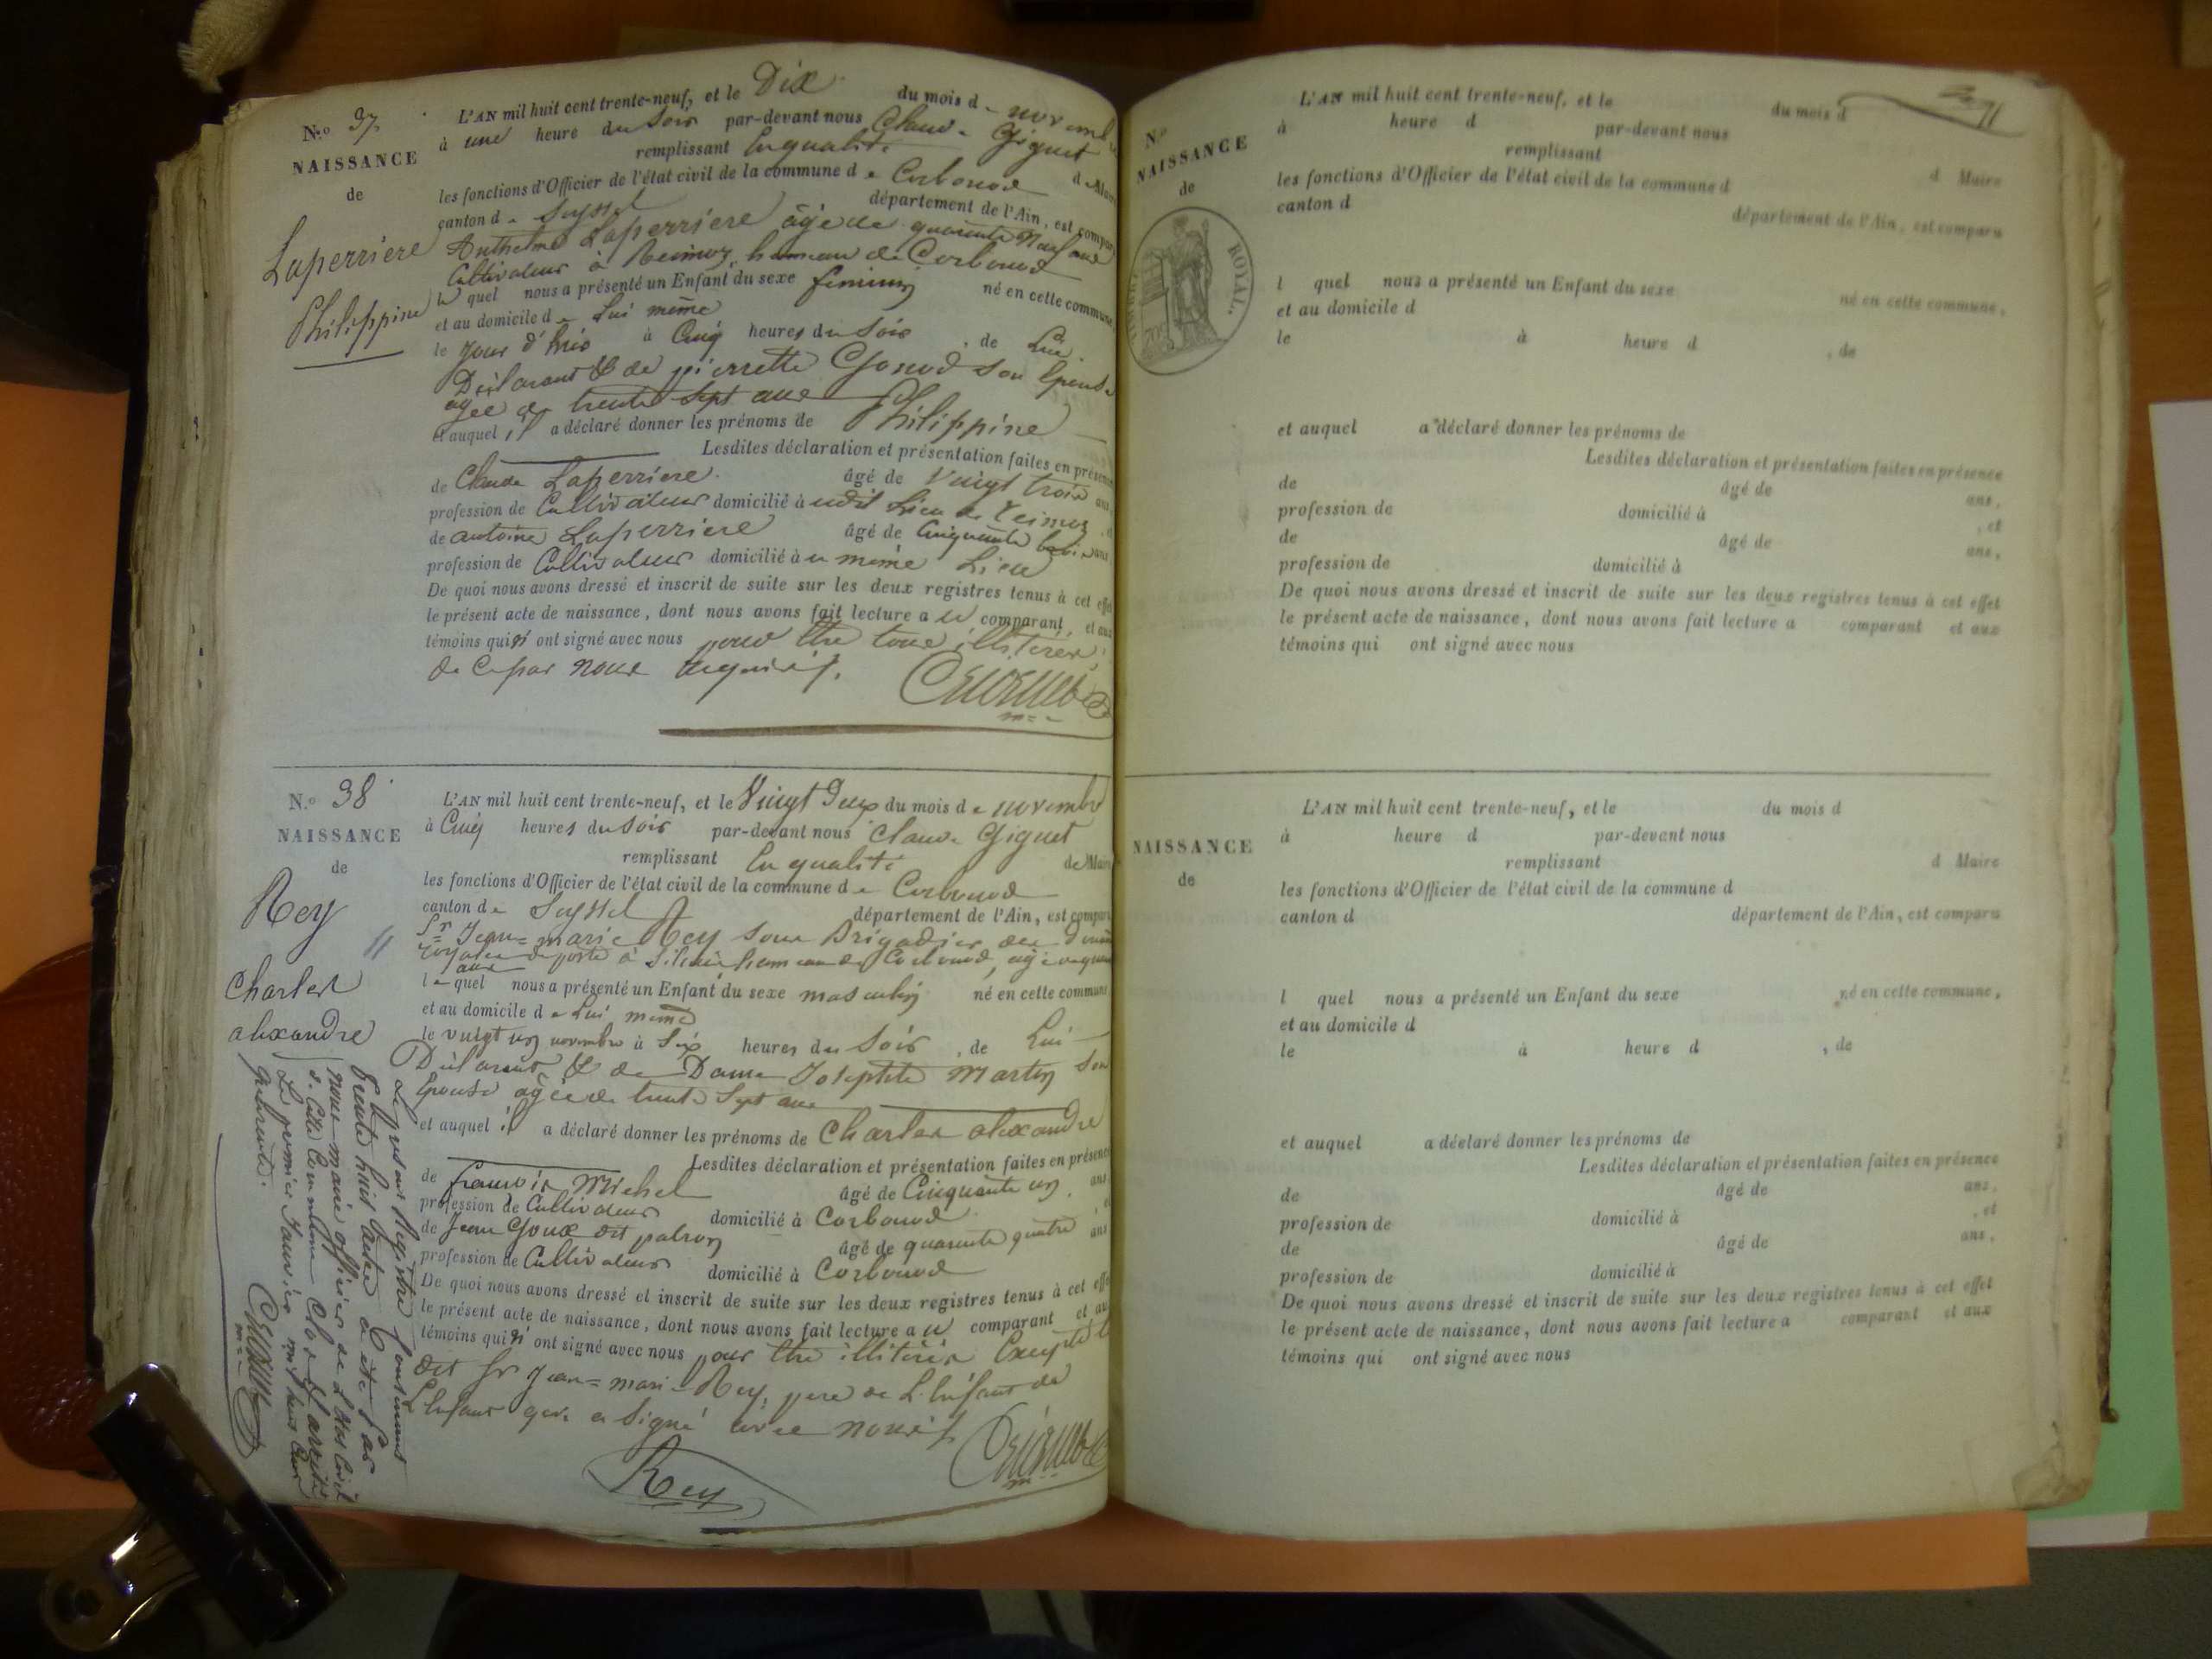 N.o 37
NAISSANCE
de
Laperriere
Philippine
L'AN mil huit cent trente-neuf, et le Dix du mois de novembre
à une heure du Soir par-devant nous Claude Giguet
remplissant En qualité de Maire
les fonctions d'Officier de l'état civil de la commune de Corbonod
canton de Seyssel département de l'Ain, est comparu
Anthelme Laperriere âgé de quarante neuf ans
Cultivateur à hameau de Corbonod
le quel nous a présenté un Enfant du sexe feminin né en cette commune,
et au domicile de Lui même
le jour d'hier à Cinq heures du Soir , de Lui
Déclarant & de pierrette Gonod son Epouse
agée de trente Sept ans
et auquel il a déclaré donner les prénoms de Philippine
Lesdites déclaration et présentation faites en présence
de Claude Laperriere âgé de Vingt trois ans
profession de Cultivateur domicilié à udit Lieu de
de antoine Laperriere âgé de Cinquante ans
profession de Cultivateur domicilié à u même Lieu
De quoi nous avons dressé et inscrit de suite sur les deux registres tenus à cet effet
le présent acte de naissance, dont nous avons fait lecture a u comparant et aux
témoins qui n' ont signé avec nous pour être tous illitérés
de ce par nous requis.
N.o 38
NAISSANCE
de
Rey
Charles
alexandre
L'AN mil huit cent trente-neuf, et le Vingt Deux du mois de novembre
à Cinq heures du Soir par-devant nous Claude Giguet
remplissant En qualité de Maire
les fonctions d'Officier de l'état civil de la commune de Corbonod
canton de Seyssel département de l'Ain, est comparu
Sr Jean=marie Rey Sous Brigadier des
poste à hameau de Corbonod, agé
ans
le quel nous a présenté un Enfant du sexe masculin né en cette commune
et au domicile de Lui même
le vingt un novembre à Six heures du Soir , de Lui
Déclarant & de Dame Josephte Martin Son
Epouse agée de trente Sept ans
et auquel il a déclaré donner les prénoms de Charles alexandre
Lesdites déclaration et présentation faites en présence
de francois Michel âgé de Cinquante un ans
profession de Cultivateur domicilié à Corbonod , et
de Jean Goux dit patron âgé de quarante quatre ans
profession de Cultivateur domicilié à Corbonod
De quoi nous avons dressé et inscrit de suite sur les deux registres tenus à cet effet
le présent acte de naissance, dont nous avons fait lecture a u comparant et au
témoins qui n' ont signé avec nous pour être illitérés Excepté le
dit Sr Jean=marie Rey, pere de L'Enfant de
L'Enfant qui a Signé avec nous
Rey
Le présent Registre Contenant
trente huit actes a été par
nous maire officier de L'état civil
de Cette Commune Clos et arrêté
Le premier Janvier mil huit Cent
quarante.
71
N.o
NAISSANCE
de
ROYAL.
L'AN mil huit cent trente-neuf, et le du mois d
à heure d par-devant nous
remplissant d Maire
les fonctions d'Officier de l'état civil de la commune d
canton d département de l'Ain, est comparu
l quel nous a présenté un Enfant du sexe né en cette commune,
et au domicile d
le à heure d , de
et auquel a déclaré donner les prénoms de
Lesdites déclaration et présentation faites en présence
de âgé de ans,
profession de domicilié à , et
de âgé de ans,
profession de domicilié à
De quoi nous avons dressé et inscrit de suite sur les deux registres tenus à cet effet
le présent acte de naissance, dont nous avons fait lecture a comparant et aux
témoins qui ont signé avec nous
NAISSANCE
de
L'AN mil huit cent trente-neuf, et le du mois d
à heure d par-devant nous
remplissant d Maire
les fonctions d'Officier de l'état civil de la commune d
canton d département de l'Ain, est comparu
l quel nous a présenté un Enfant du sexe né en cette commune,
et au domicile d
le à heure d , de
et auquel a déclaré donner les prénoms de
Lesdites déclaration et présentation faites en présence
de âgé de ans,
profession de domicilié à , et
de âgé de ans,
profession de domicilié à
De quoi nous avons dressé et inscrit de suite sur les deux registres tenus à cet effet
le présent acte de naissance, dont nous avons fait lecture a comparant et aux
témoins qui ont signé avec nous